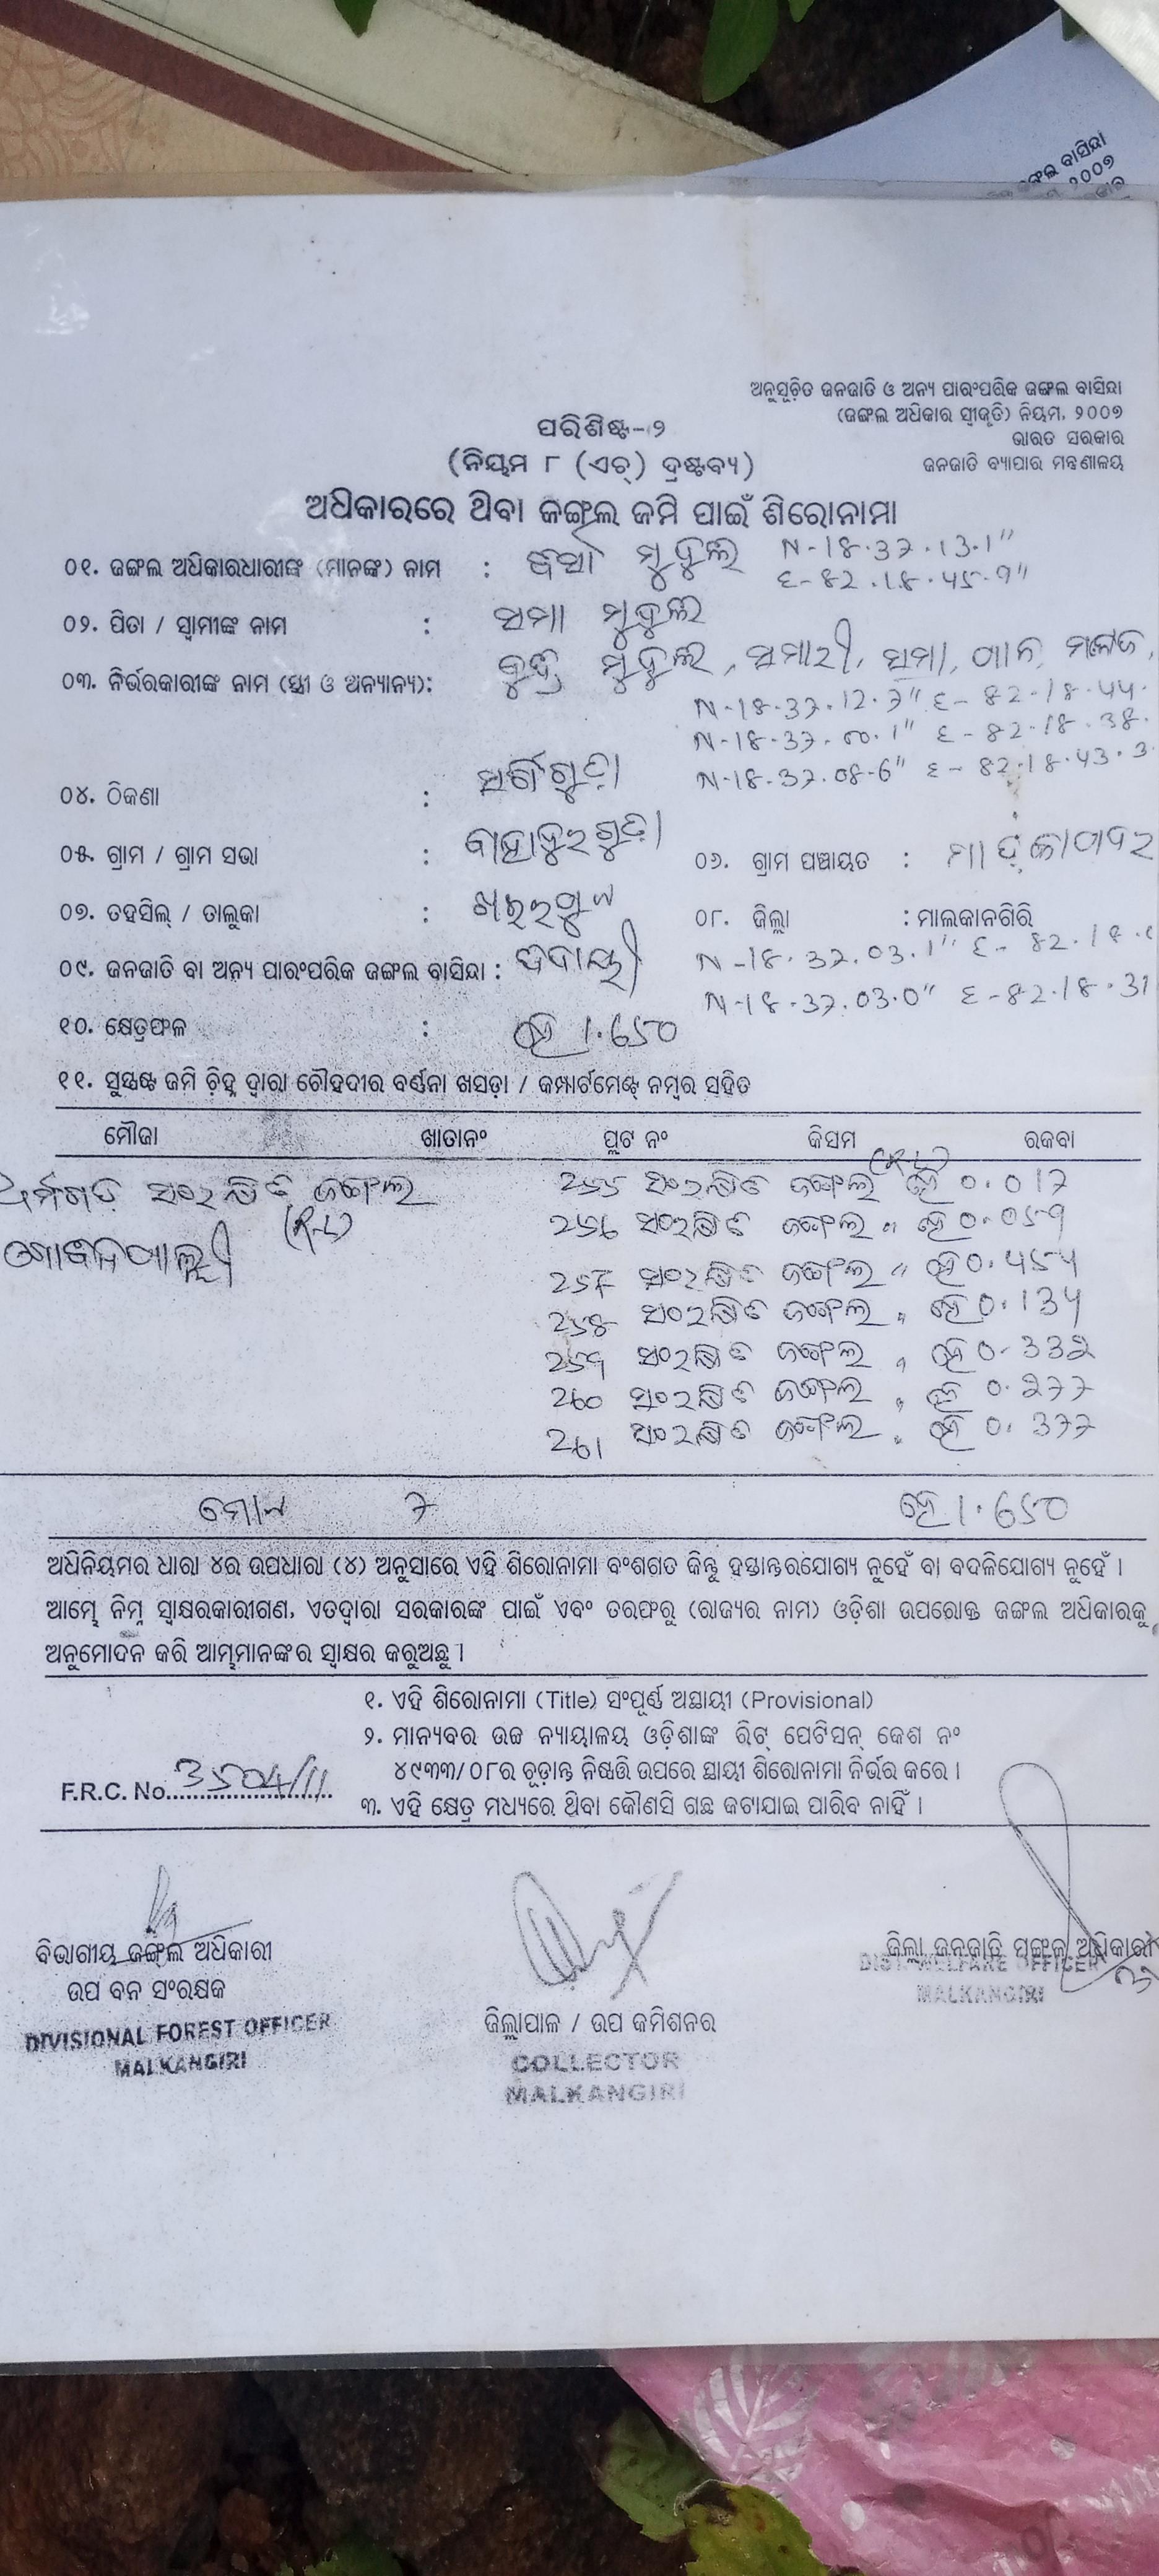 ଜଙ୍ଗଲ ବାସିନ୍ଦା
୨୦୦୭
ଅନୁସୂଚିତ ଜନଜାତି ଓ ଅନ୍ୟ ପାରଂପରିକ ଜଙ୍ଗଲ ବାସିନ୍ଦା
(ଜଙ୍ଗଲ ଅଧିକାର ସ୍ୱୀକୃତି) ନିୟମ, ୨୦୦୭
ଭାରତ ସରକାର
ଜନଜାତି ବ୍ୟାପାର ମନ୍ତ୍ରଣାଳୟ
ପରିଶିଷ୍ଟ-୨
(ନିୟମ ୮ (ଏଚ୍) ଦ୍ରଷ୍ଟବ୍ୟ)
ଅଧିକାରରେ ଥିବା ଜଙ୍ଗଲ ଜମି ପାଇଁ ଶିରୋନାମା
୦୧. ଜଙ୍ଗଲ ଅଧିକାରଧାରୀଙ୍କ (ମାନଙ୍କ) ନାମ : ମୁଦୁଲି N-18.32.13.1"
E-82.18.45.9"
୦୨. ପିତା / ସ୍ୱାମୀଙ୍କ ନାମ : ସମା ମୁଦୁଲି
୦୩. ନିର୍ଭରକାରୀଙ୍କ ନାମ (ସ୍ତ୍ରୀ ଓ ଅନ୍ୟାନ୍ୟ): ମୁଦୁଲି, ସମାରୀ, ସମା,
N-18.32.12.7" E-82.18.44.
N-18.32. E-82.18.38.
N-18.32.08.6" E-82.18.43.3
୦୪. ଠିକଣା :
୦୫. ଗ୍ରାମ / ଗ୍ରାମ ସଭା : ବାହାଦୁରଗୁଡ଼ା ୦୬. ଗ୍ରାମ ପଞ୍ଚାୟତ :
୦୭. ତହସିଲ୍ / ତାଲୁକା : ଖଇରପୁଟ ୦୮. ଜିଲ୍ଲା : ମାଲକାନଗିରି
N-18.32.03.1" E-82.18.
୦୯. ଜନଜାତି ବା ଅନ୍ୟ ପାରଂପରିକ ଜଙ୍ଗଲ ବାସିନ୍ଦା :
N-18.32.03.0" E-82.18.31
୧୦. କ୍ଷେତ୍ରଫଳ : ହେ 1.650
୧୧. ସୁସ୍ପଷ୍ଟ ଜମି ଚିହ୍ନ ଦ୍ୱାରା ଚୌହଦୀର ବର୍ଣ୍ଣନା ଖସଡ଼ା / କମ୍ପାର୍ଟମେଣ୍ଟ୍ ନମ୍ବର ସହିତ
ମୌଜା ଖାତାନଂ ପ୍ଲଟ ନଂ କିସମ ରକବା
ସଂରକ୍ଷିତ ଜଙ୍ଗଲ 255 ସଂରକ୍ଷିତ ଜଙ୍ଗଲ ହେ 0.017
256 ସଂରକ୍ଷିତ ଜଙ୍ଗଲ " ହେ 0.059
257 ସଂରକ୍ଷିତ ଜଙ୍ଗଲ " ହେ 0.454
258 ସଂରକ୍ଷିତ ଜଙ୍ଗଲ " ହେ 0.134
259 ସଂରକ୍ଷିତ ଜଙ୍ଗଲ " ହେ 0.332
260 ସଂରକ୍ଷିତ ଜଙ୍ଗଲ " ହେ 0.277
261 ସଂରକ୍ଷିତ ଜଙ୍ଗଲ " ହେ 0.377
ମୋଟ 7 ହେ 1.650
ଅଧିନିୟମର ଧାରା ୪ର ଉପଧାରା (୪) ଅନୁସାରେ ଏହି ଶିରୋନାମା ବଂଶଗତ କିନ୍ତୁ ହସ୍ତାନ୍ତରଯୋଗ୍ୟ ନୁହେଁ ବା ବଦଳିଯୋଗ୍ୟ ନୁହେଁ ।
ଆମ୍ଭେ ନିମ୍ନ ସ୍ୱାକ୍ଷରକାରୀଗଣ, ଏତଦ୍ୱାରା ସରକାରଙ୍କ ପାଇଁ ଏବଂ ତରଫରୁ (ରାଜ୍ୟର ନାମ) ଓଡ଼ିଶା ଉପରୋକ୍ତ ଜଙ୍ଗଲ ଅଧିକାରକୁ
ଅନୁମୋଦନ କରି ଆମ୍ଭମାନଙ୍କର ସ୍ୱାକ୍ଷର କରୁଅଛୁ ।
୧. ଏହି ଶିରୋନାମା (Title) ସଂପୂର୍ଣ୍ଣ ଅସ୍ଥାୟୀ (Provisional)
୨. ମାନ୍ୟବର ଉଚ୍ଚ ନ୍ୟାୟାଳୟ ଓଡ଼ିଶାଙ୍କ ରିଟ୍ ପେଟିସନ୍ କେଶ ନଂ
୪୯୩୩/୦୮ର ଚୂଡ଼ାନ୍ତ ନିଷ୍ପତ୍ତି ଉପରେ ସ୍ଥାୟୀ ଶିରୋନାମା ନିର୍ଭର କରେ ।
F.R.C. No. 3504/11
୩. ଏହି କ୍ଷେତ୍ର ମଧ୍ୟରେ ଥିବା କୌଣସି ଗଛ କଟାଯାଇ ପାରିବ ନାହିଁ ।
ବିଭାଗୀୟ ଜଙ୍ଗଲ ଅଧିକାରୀ
ଉପ ବନ ସଂରକ୍ଷକ
DIVISIONAL FOREST OFFICER
MALKANGIRI
ଜିଲ୍ଲାପାଳ / ଉପ କମିଶନର
COLLECTOR
MALKANGIRI
ଜିଲ୍ଲା ଜନଜାତି ମଙ୍ଗଳ ଅଧିକାରୀ
DIST. WELFARE OFFICER
MALKANGIRI